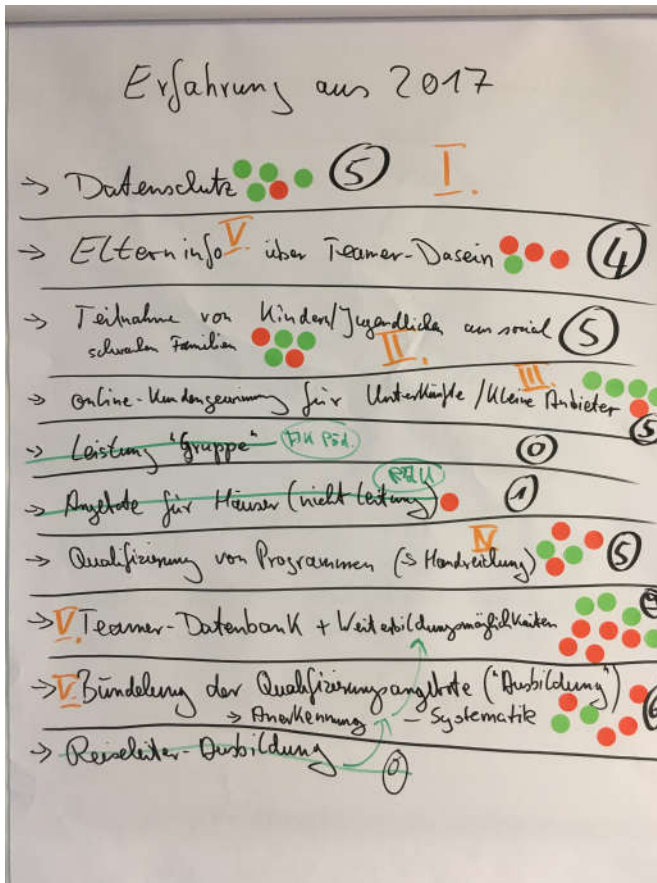 Erfahrung aus 2017
→ Datenschutz 5 I.
→ Elterninfo V über Teamer-Dasein 4
→ Teilnahme von Kindern/Jugendlichen aus sozial 5
schwachen Familien II.
→ online-Kundengewinnung für Unterkünfte/Kleine Anbieter III. 5
→ Leistung "Gruppe" Päd. 0
→ Angebote für Häuser (nicht Leitung) 1
→ Qualifizierung von Programmen (→ Handreichung) IV 5
→ V. Teamer-Datenbank + Weiterbildungsmöglichkeiten 9
→ V. Bündelung der Qualifizierungsangebote ("Ausbildung") 6
→ Anerkennung – Systematik
→ Reiseleiter-Ausbildung 0